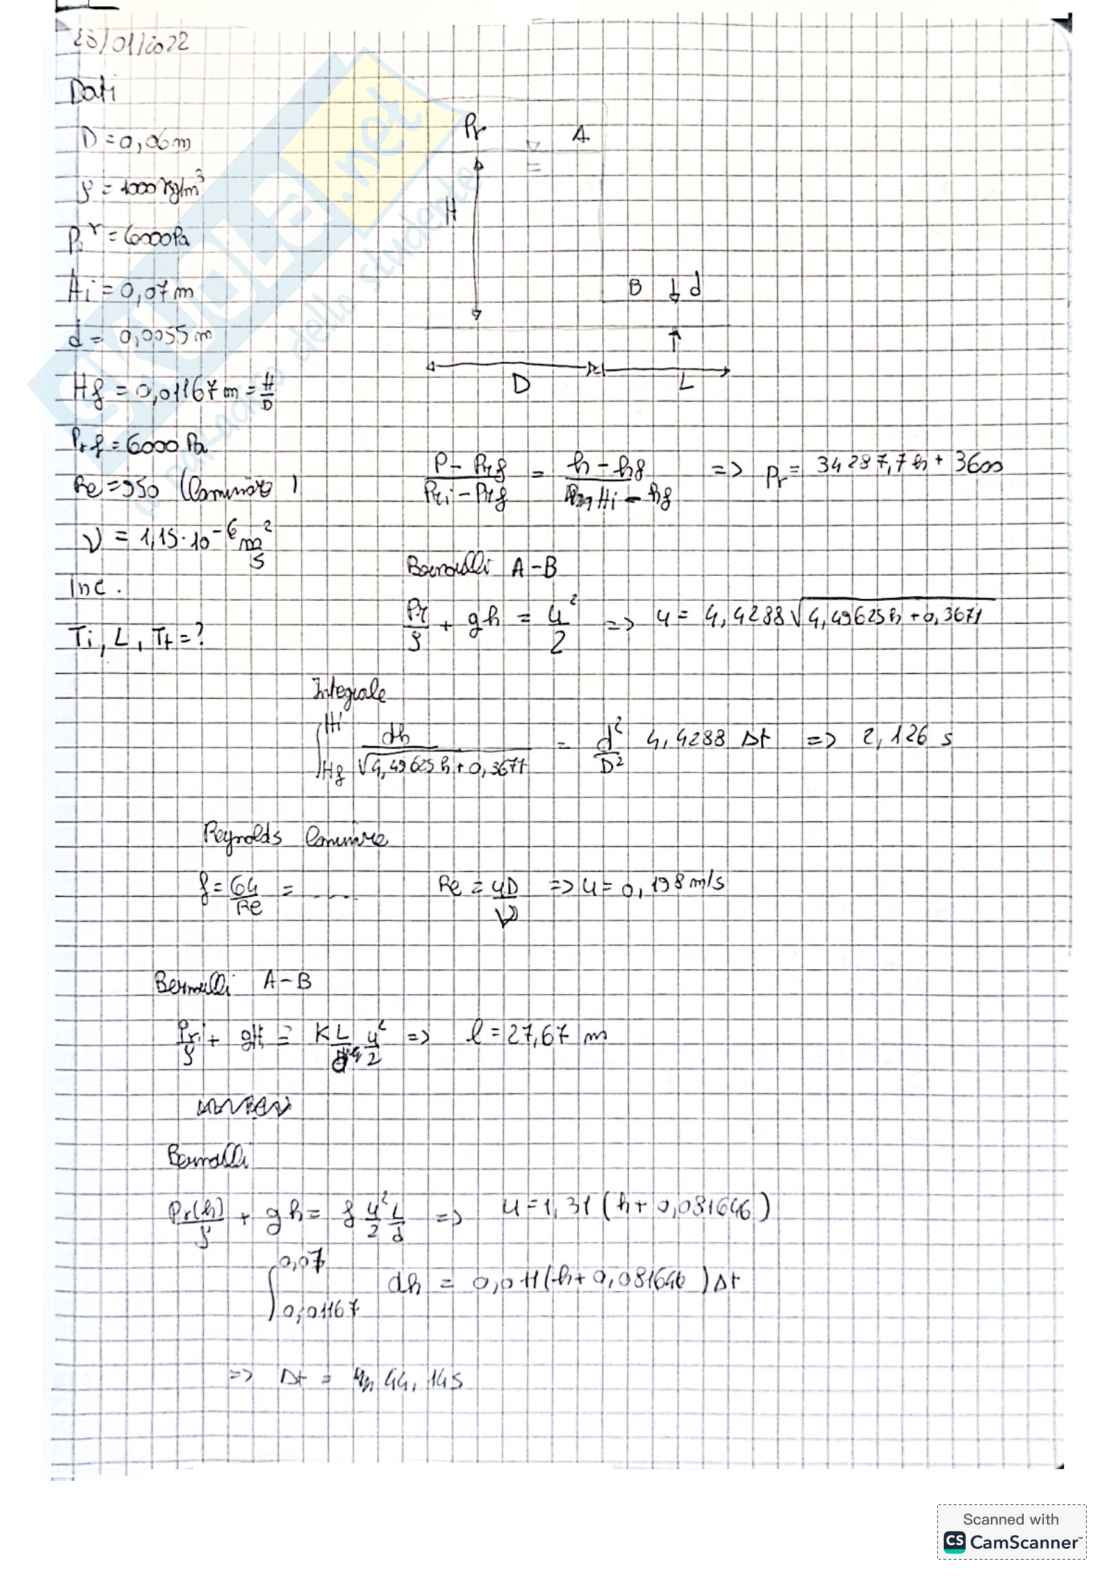 25/01/2022
Dati
D = 0,06 m
ρ = 1000 kg/m³
Pᵢʳ = 6000 Pa
Hi = 0,07 m
d = 0,0055 m
Hf = 0,01167 m = H/D
Prf = 6000 Pa
Re = 950 (laminare)
ν = 1,15·10⁻⁶ m²/s
Inc.
Ti, L, Tt = ?
Pr A
H
B d
D L
(P - Prf)/(Pri - Prf) = (h - hf)/(Hi - hf) => Pr = 34287,7h + 3600
Bernoulli A-B
Pr/ρ + gh = u²/2 => u = 4,4288 √(4,49625h + 0,3671)
Integrale
∫ Hi Hf dh/√(4,49625h + 0,3671) = d²/D² 4,4288 Δt => 2,126 s
Reynolds laminare
f = 64/Re = .... Re = uD/ν => u = 0,198 m/s
Bernoulli A-B
Pri/ρ + gHi = K L/d u²/2 => l = 27,67 m
Bernoulli
Pr(h)/ρ + gh = f u²/2 L/d => u = 1,31 (h + 0,081646)
∫ 0,07 0,01167 dh = 0,011 (h + 0,081646) Δt
=> Δt = 44,14s
Scanned with
CS CamScanner
skuola.net
dello studente